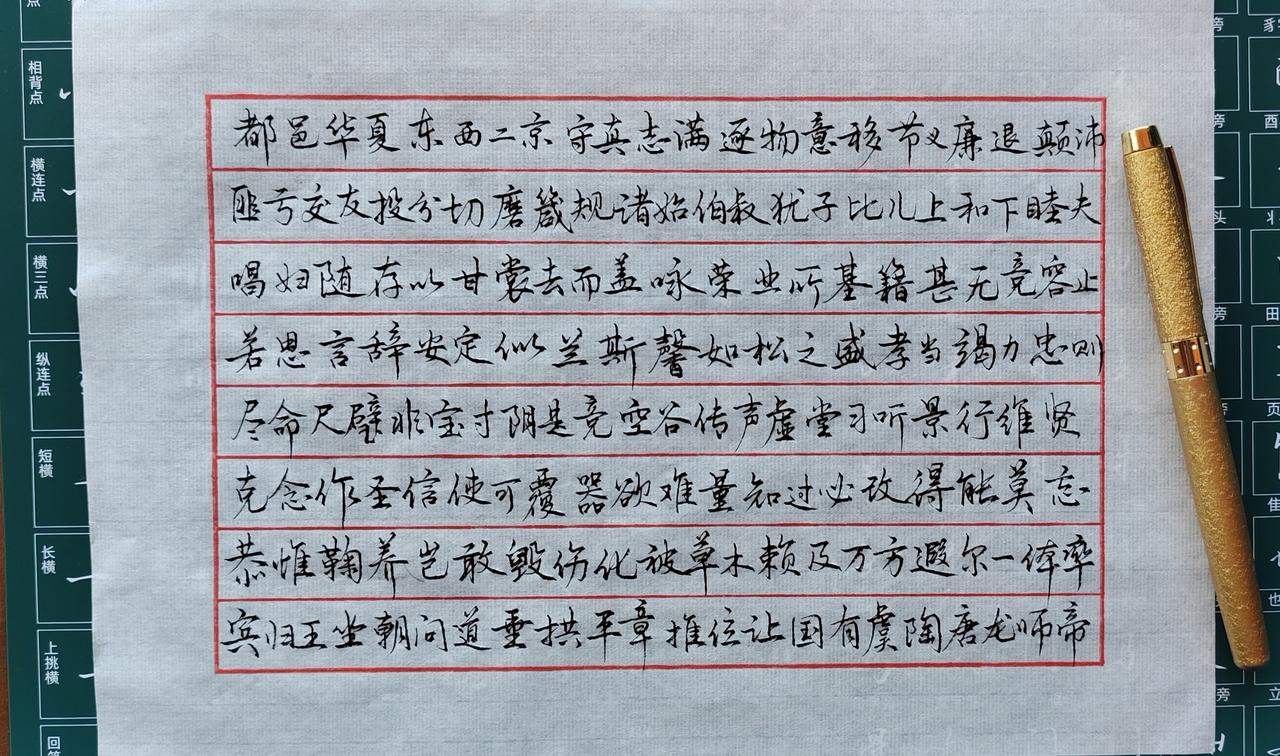 都邑华夏东西二京守真志满逐物意移节义廉退颠沛
匪亏交友投分切磨箴规诸姑伯叔犹子比儿上和下睦夫
唱妇随存以甘棠去而益咏荣业所基籍甚无竟容止
若思言辞安定似兰斯馨如松之盛孝当竭力忠则
尽命尺璧非宝寸阴是竞空谷传声虚堂习听景行维贤
克念作圣信使可覆器欲难量知过必改得能莫忘
恭惟鞠养岂敢毁伤化被草木赖及万方遐尔一体率
宾归王坐朝问道垂拱平章推位让国有虞陶唐龙师帝
点
相背点
横连点
横三点
纵连点
短横
长横
上挑横
旁
酉
旁
头
旁
田
旁
页
旁
旁
立